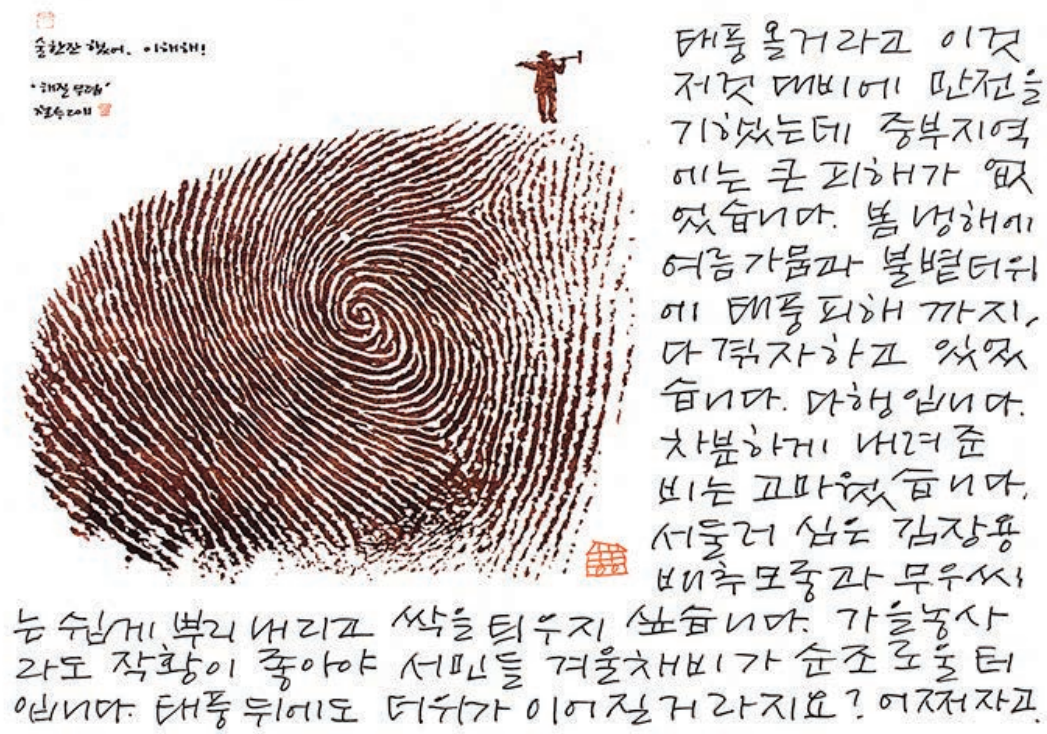 술한잔 했어. 이해해!
"해질 무렵"
철수 2011
태풍 올거라고 이것
저것 대비에 만전을
기했는데 중부지역
에는 큰 피해가 없
었습니다. 봄 냉해에
여름가뭄과 불볕더위
에 태풍피해 까지,
다 겪자하고 있었
습니다. 다행입니다.
차분하게 내려준
비는 고마웠습니다.
서둘러 심은 김장용
배추모종과 무우씨
는 쉽게 뿌리내리고 싹을 틔우지 싶습니다. 가을농사
라도 작황이 좋아야 서민들 겨울채비가 순조로울터
입니다. 태풍뒤에도 더위가 이어질거라지요? 어쩌자고.